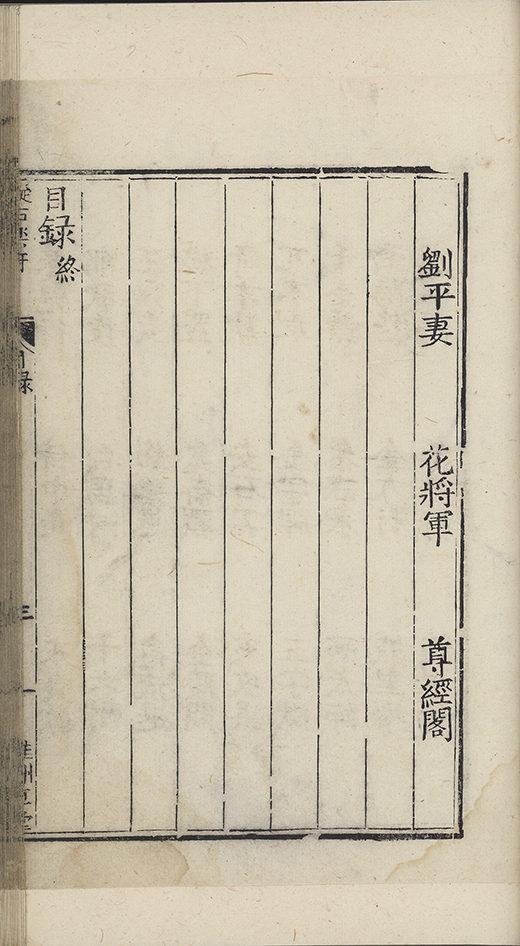 劉平妻　花將軍　尊經閣
目録終
目録
三